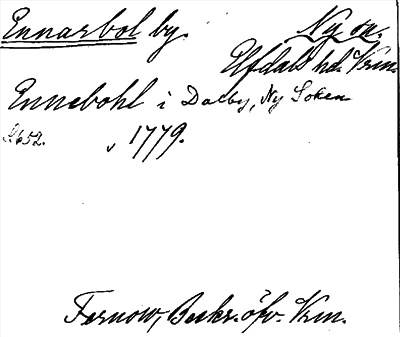 Ennarbol by. Ny sn.
Elfdals hd. Vrm.
Ennebohl i Dalby, Ny Soken
s. 652. v 1779.
Fernow, Beskr. öfv. Vrm.